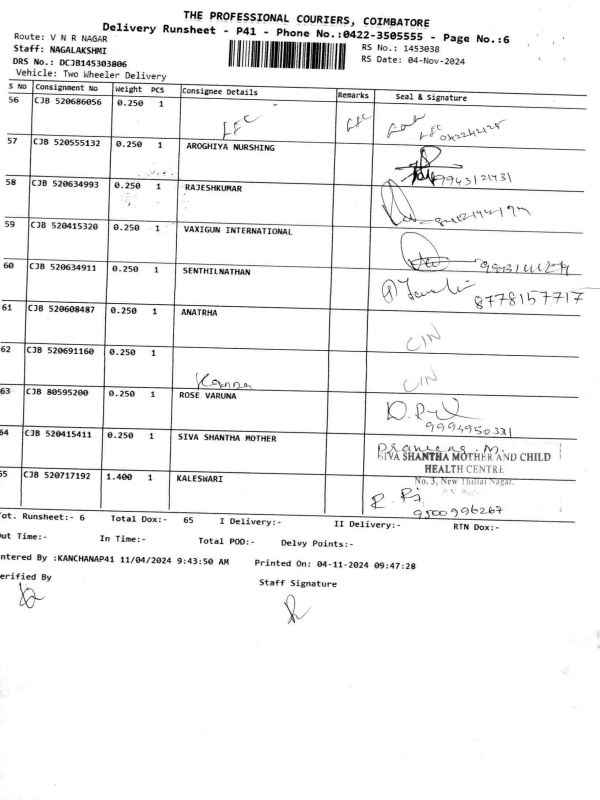 THE PROFESSIONAL COURIERS, COIMBATORE
Delivery Runsheet - P41 - Phone No.:0422-3505555 - Page No.:6
Route: V N R NAGAR
RS No.: 1453038
Staff: NAGALAKSHMI
RS Date: 04-Nov-2024
DRS No.: DCJB145303806
Vehicle: Two Wheeler Delivery
S No Consignment No Weight PCS Consignee Details Remarks Seal & Signature
56 CJB 520686056 0.250 1
57 CJB 520555132 0.250 1 AROGHIYA NURSHING
9943121431
58 CJB 520634993 0.250 1 RAJESHKUMAR
59 CJB 520415320 0.250 1 VAXIGUN INTERNATIONAL
60 CJB 520634911 0.250 1 SENTHILNATHAN
8778157717
61 CJB 520608487 0.250 1 ANATRHA
CIN
62 CJB 520691160 0.250 1
CIN
63 CJB 80595200 0.250 1 ROSE VARUNA
9994950331
64 CJB 520415411 0.250 1 SIVA SHANTHA MOTHER
SIVA SHANTHA MOTHER AND CHILD
HEALTH CENTRE
No. 3, New Thillai Nagar,
65 CJB 520717192 1.400 1 KALESWARI
9500996267
Tot. Runsheet:- 6 Total Dox:- 65 I Delivery:- II Delivery:- RTN Dox:-
Out Time:- In Time:- Total POD:- Delvy Points:-
ntered By :KANCHANAP41 11/04/2024 9:43:50 AM Printed On: 04-11-2024 09:47:28
erified By Staff Signature